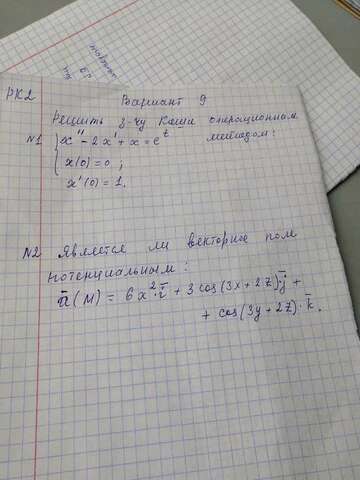 РК2
Вариант 9
Решить з-чу Коши операционным
методом:
№1 { x'' - 2x' + x = e^t
x(0) = 0 ;
x'(0) = 1.
№2 Является ли векторное поле
потенциальным :
a̅(M) = 6x²·i̅ + 3cos(3x+2z)·j̅ +
+ cos(3y+2z)·k̅.